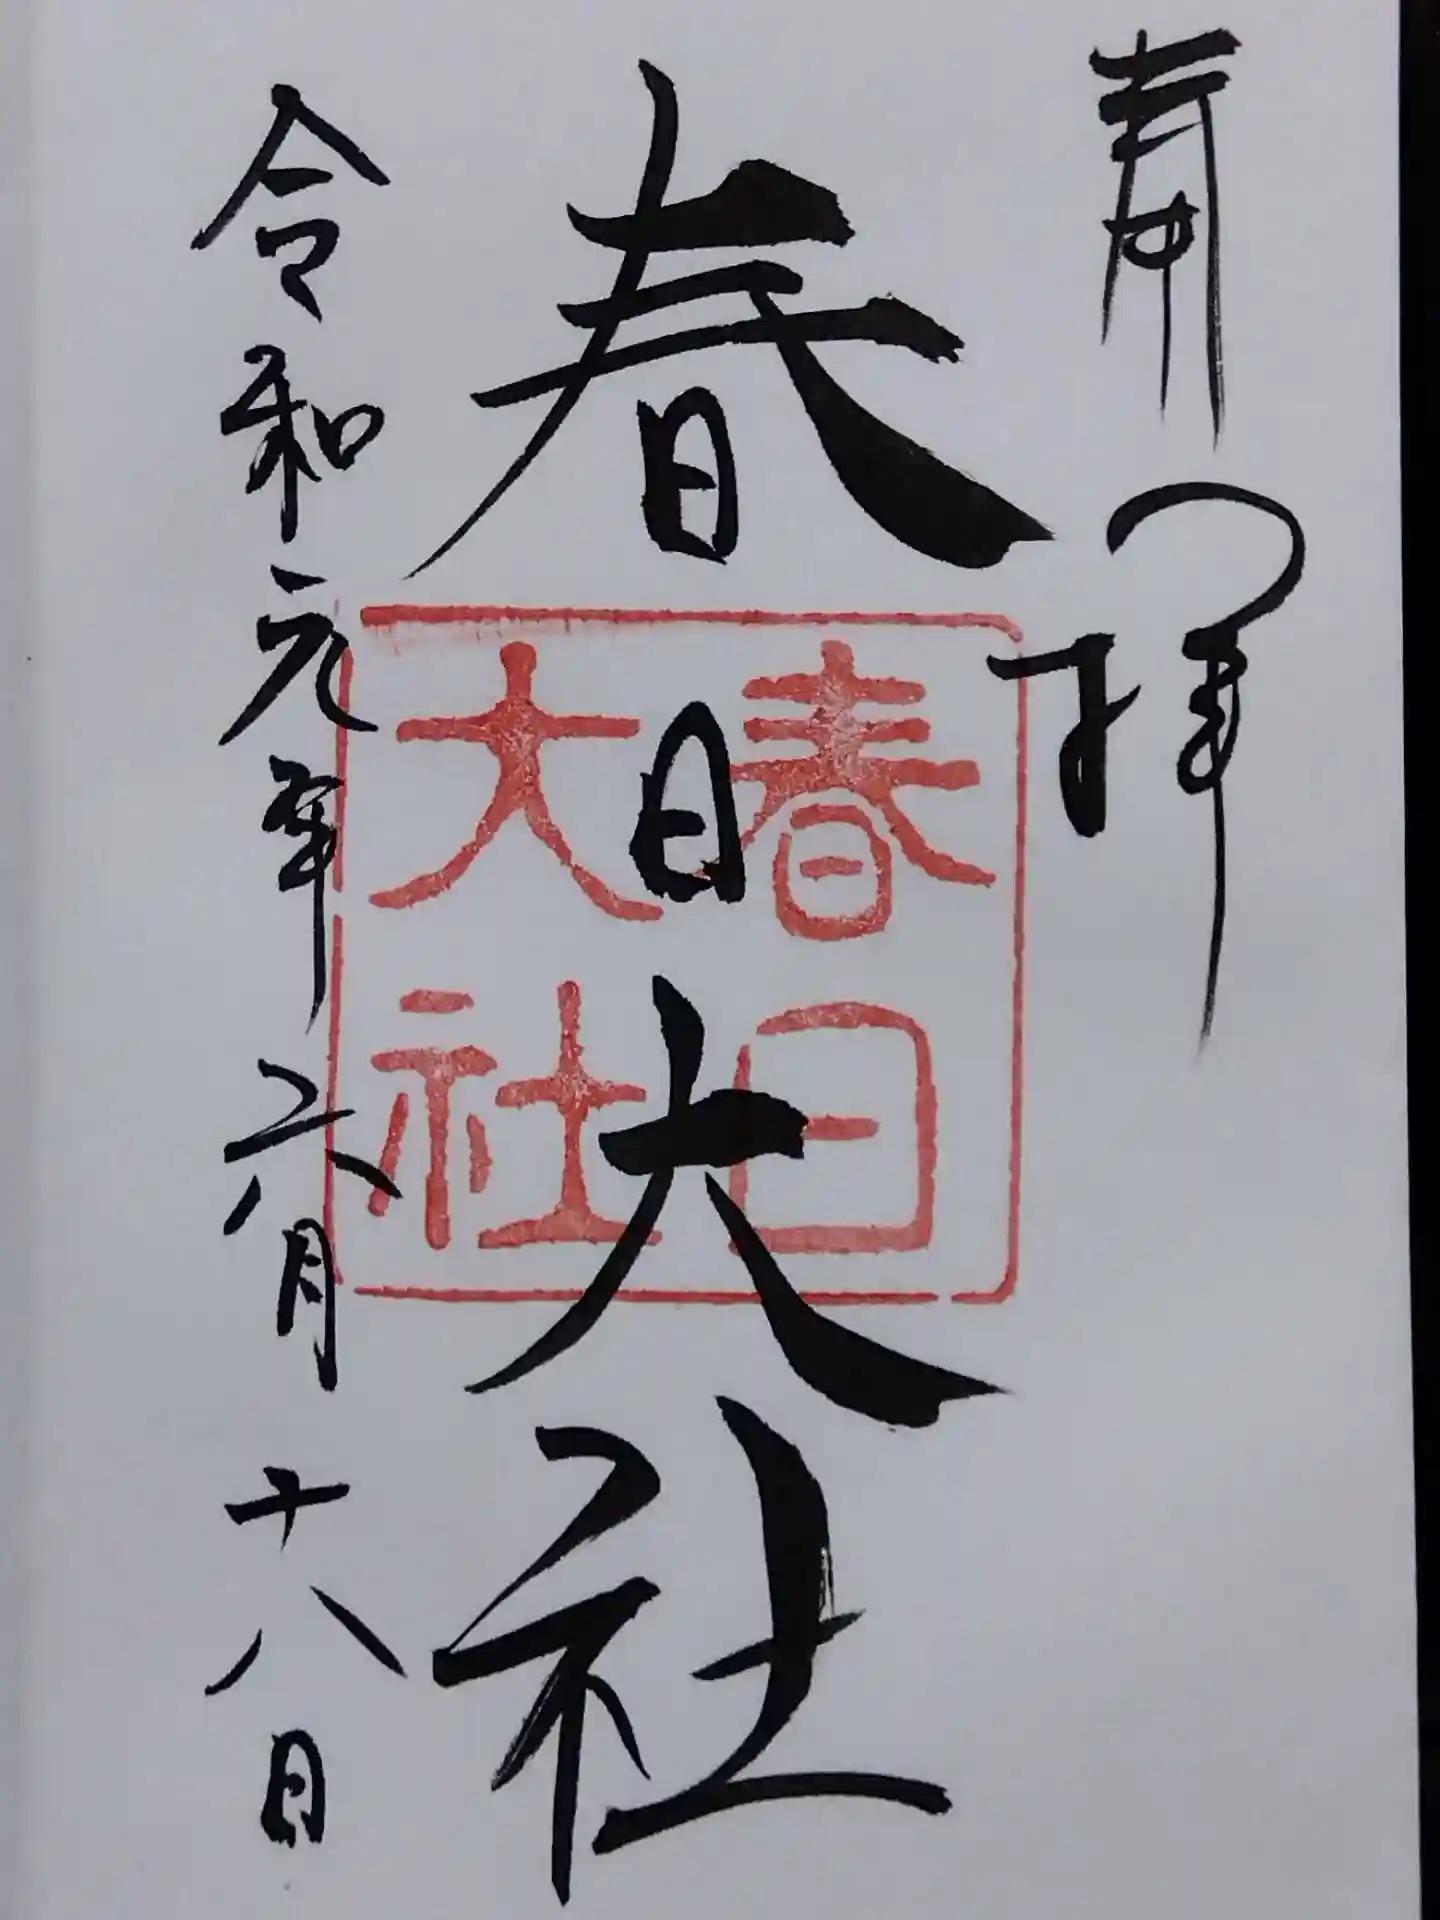 奉拝
春日大社
春日
大社
令和元年六月十八日